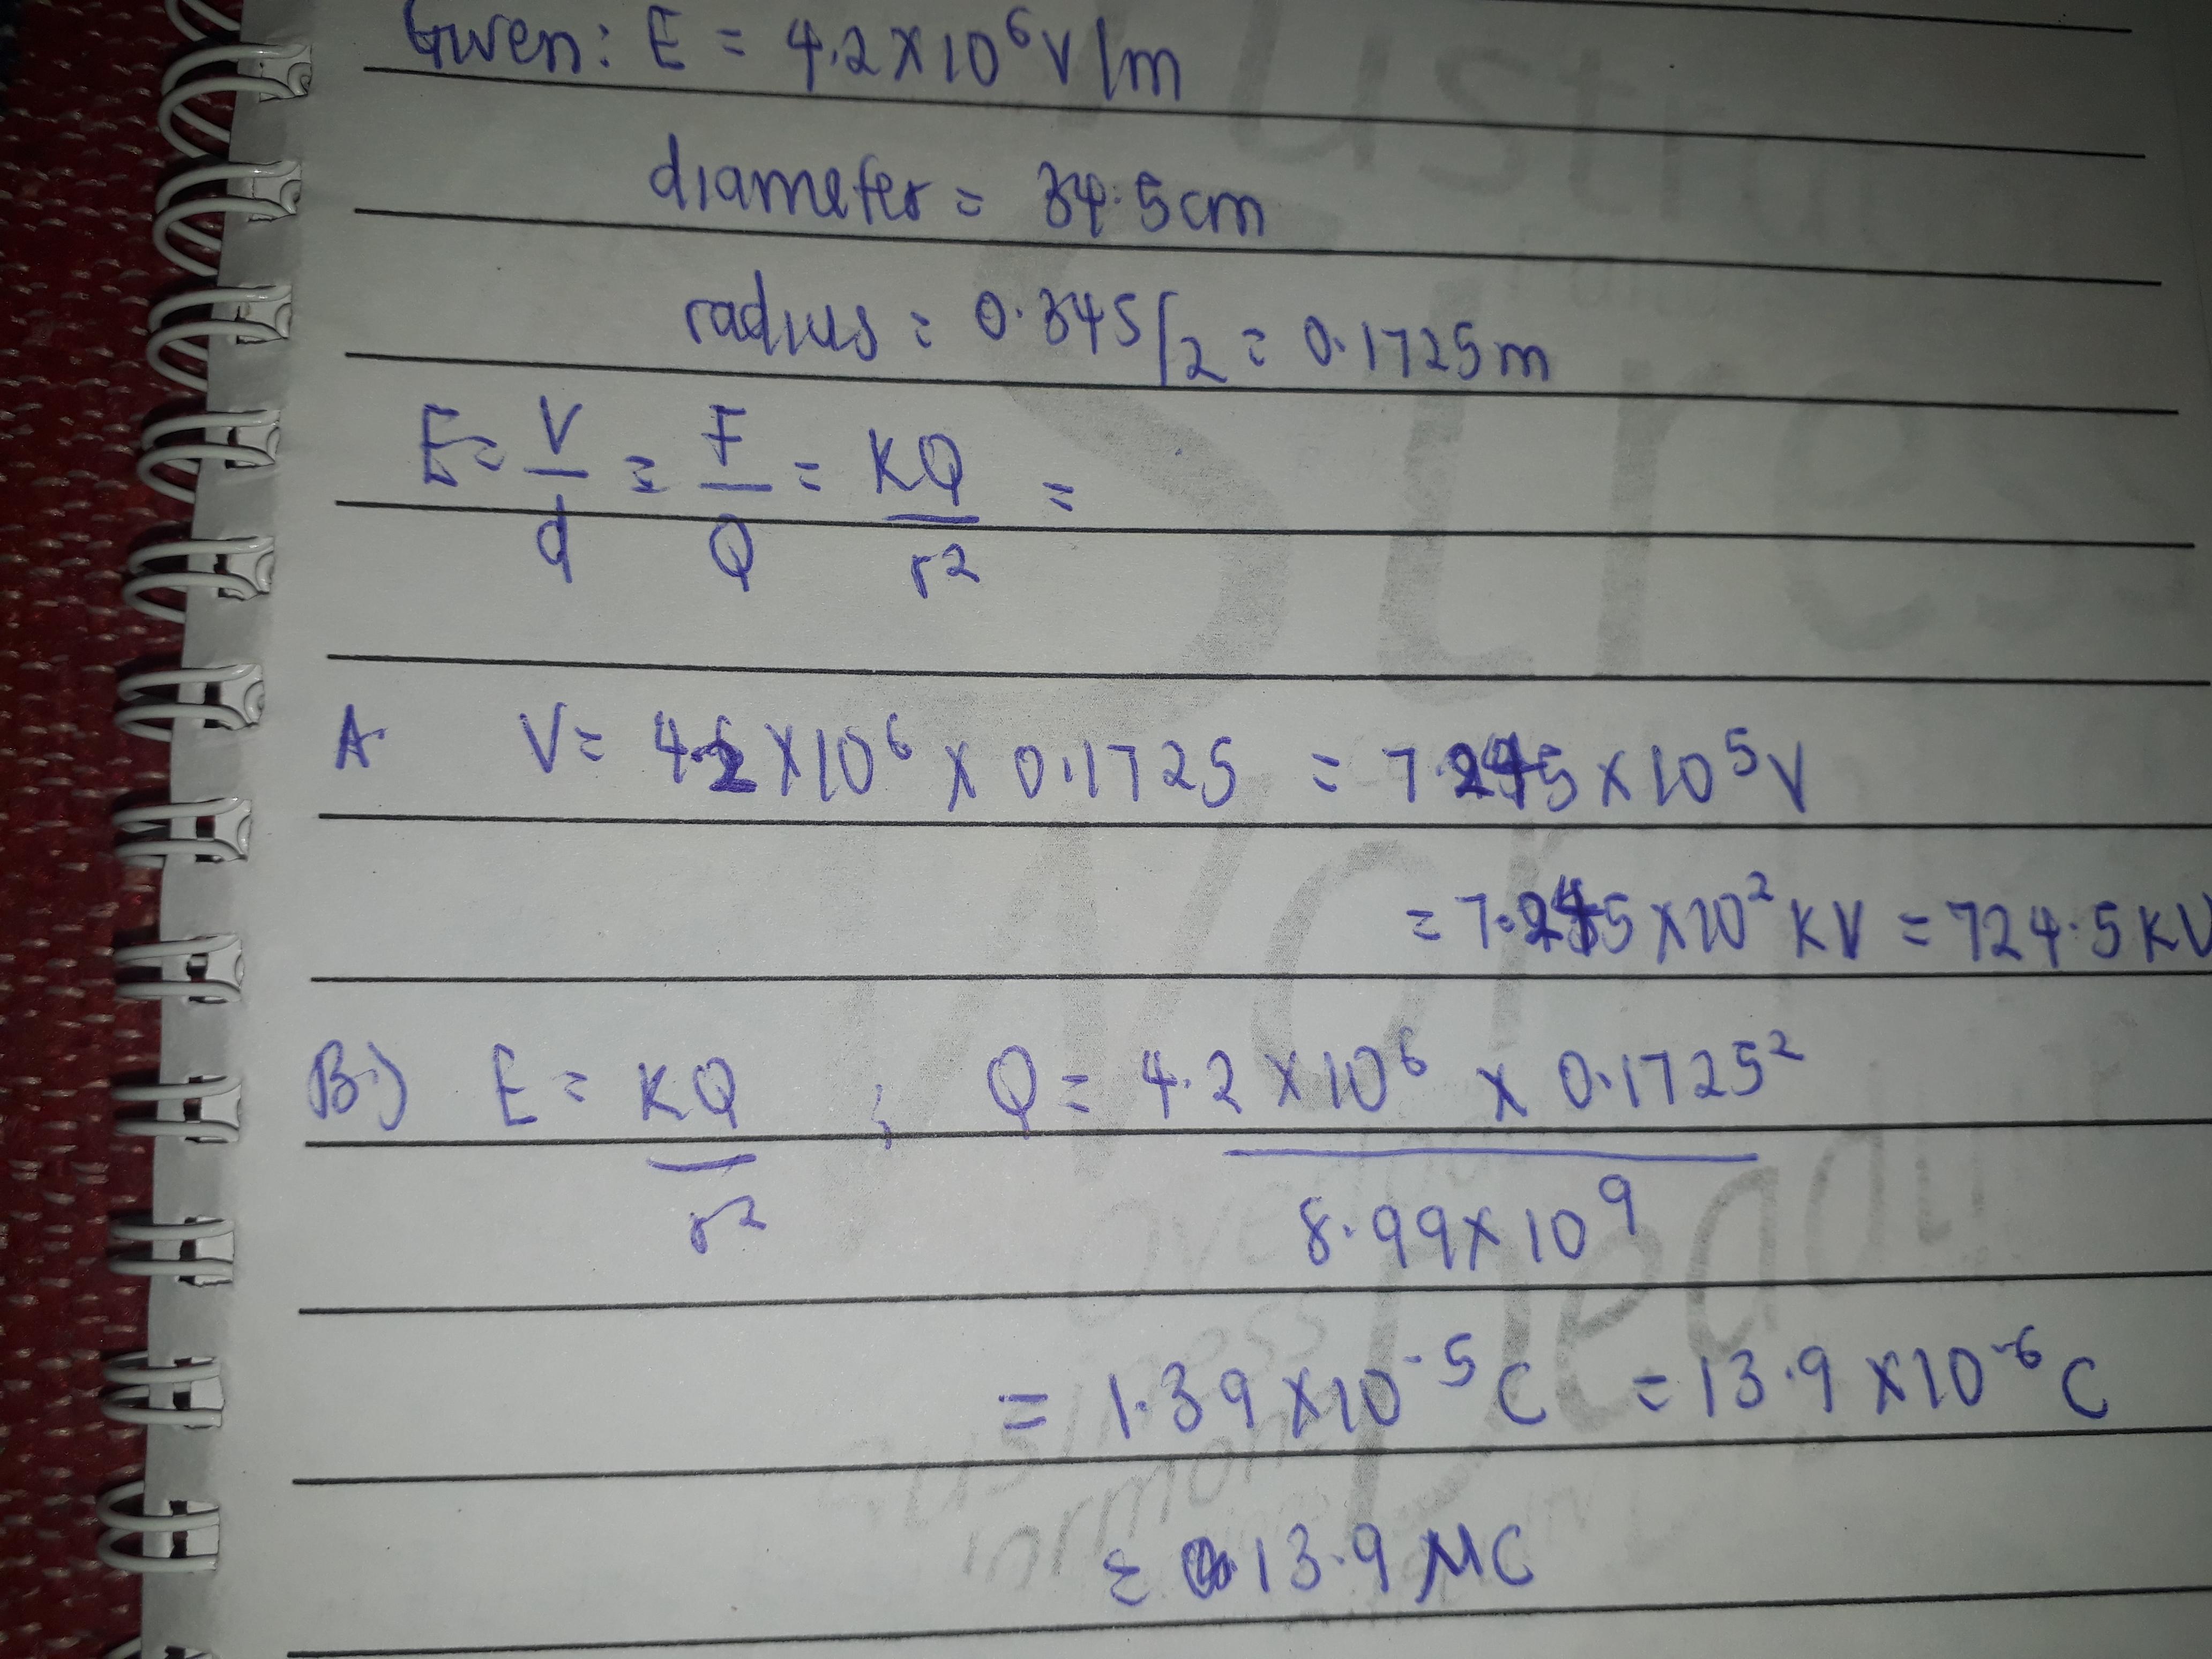 Given: E = 4.2 × 10⁶ V/m
diameter = 34.5cm
radius = 0.345/2 = 0.1725m
E = V/d = F/Q = KQ/r² =
A. V = 4.2 × 10⁶ × 0.1725 = 7.245 × 10⁵ V
= 7.245 × 10² KV = 724.5 KV
B.) E = KQ/r² ; Q = 4.2 × 10⁶ × 0.1725² / 8.99 × 10⁹
= 1.39 × 10⁻⁵ C = 13.9 × 10⁻⁶ C
= 13.9 μC